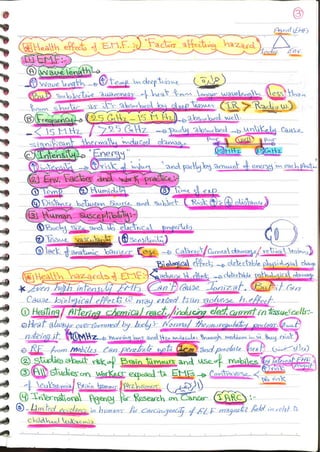 3
Health effects of E.M.F. is Factors affecting hazard
1) EMF:
A) Wave length
↑ Wave length → ↑ Temp in deep tissue
But subjective awareness of heat from longer wavelength less than
from shorter as it's absorbed by deep tissues IR > Radar
B) Frequency: 2.5 GHz - 15 M → absorbed well
< 15 MHz / > 2.5 GHz → poorly absorbed → unlikely cause
significant thermally induced damage.
C) Intensity: Energy:
↑ Intensity → ↑ risk of injury and partly by amount of energy in each photon
2) Env. factors and work practice:
① Temp ② Humidity ③ Time of exp.
④ Distance between source and subject (Risk 1/distance)
3) Human susceptibility:
① Body size and its electrical properties
② Tissue vascularity (sensitivity)
③ lack of anatomic barrier Eye → Cataract / Corneal damage / retinal lesions
Biological effect: → detectable physiological change
Health hazards of EMFs adverse h. effect: → detectable pathological damage
Even high intensity EMFs Can't cause Ionizat. But it Can
Cause biological effects w may extend to an adverse h. effect.
① Heating / Altering chemical react / inducing elect. current in tissue cells:-
Heat always overcommed by body's Normal thermoregulatory process without
noticing it.
RF from mobiles Can penetrate into 1cm and
② Studies about risk of Brain tumours and use of mobiles
No risk
③ All studies on workers exposed to EMFs → Controversy
↑ risk
of leukaemia / Brain tumour / Alzheimer
④ International Agency for Research on Cancer (IARC):-
Limited evidence in humans for Carcinogenicity of ELF magnetic field in relat. to
childhood leukaemia